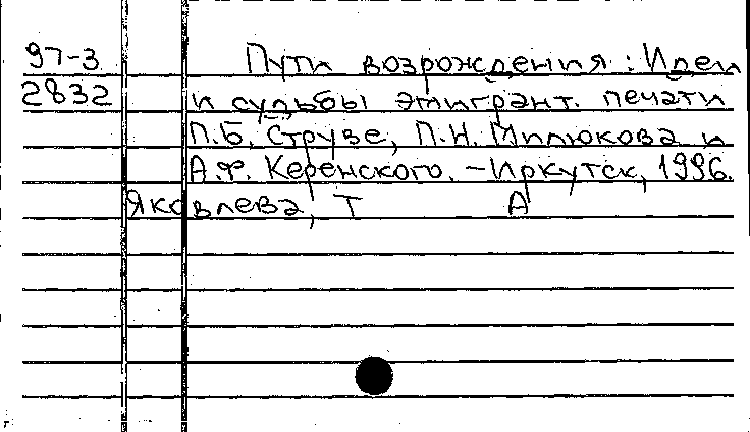 97-3 Пути возрождения : Идеи
2832 и судьбы эмигрант. печати
П.Б. Струве, П.Н. Милюкова и
А.Ф. Керенского. – Иркутск, 1996.
Яковлева, Т А